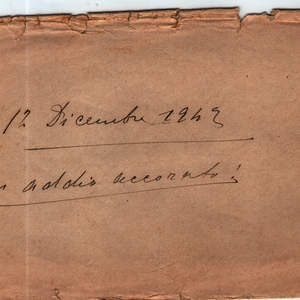 12 Dicembre 1942
addio accorato!